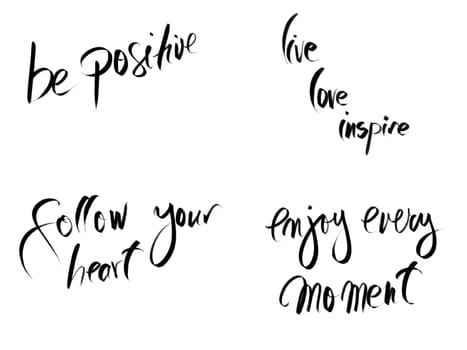 be positive
live
love
inspire
follow your
heart
enjoy every
moment